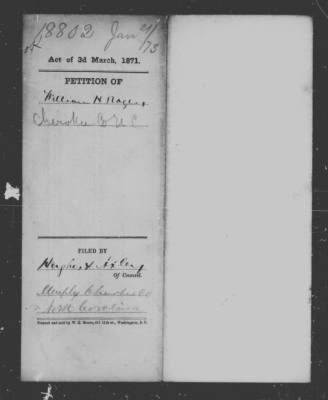 18802 Jan 21/73
Act of 3d March, 1871.
PETITION OF
William H Rogers
Cherokee Co N C
FILED BY
Hughes &
Of Counsel.
Murphy Cherokee Co
North Carolina
Printed and sold by W. H. Moore, 511 11th st., Washington, D. C.